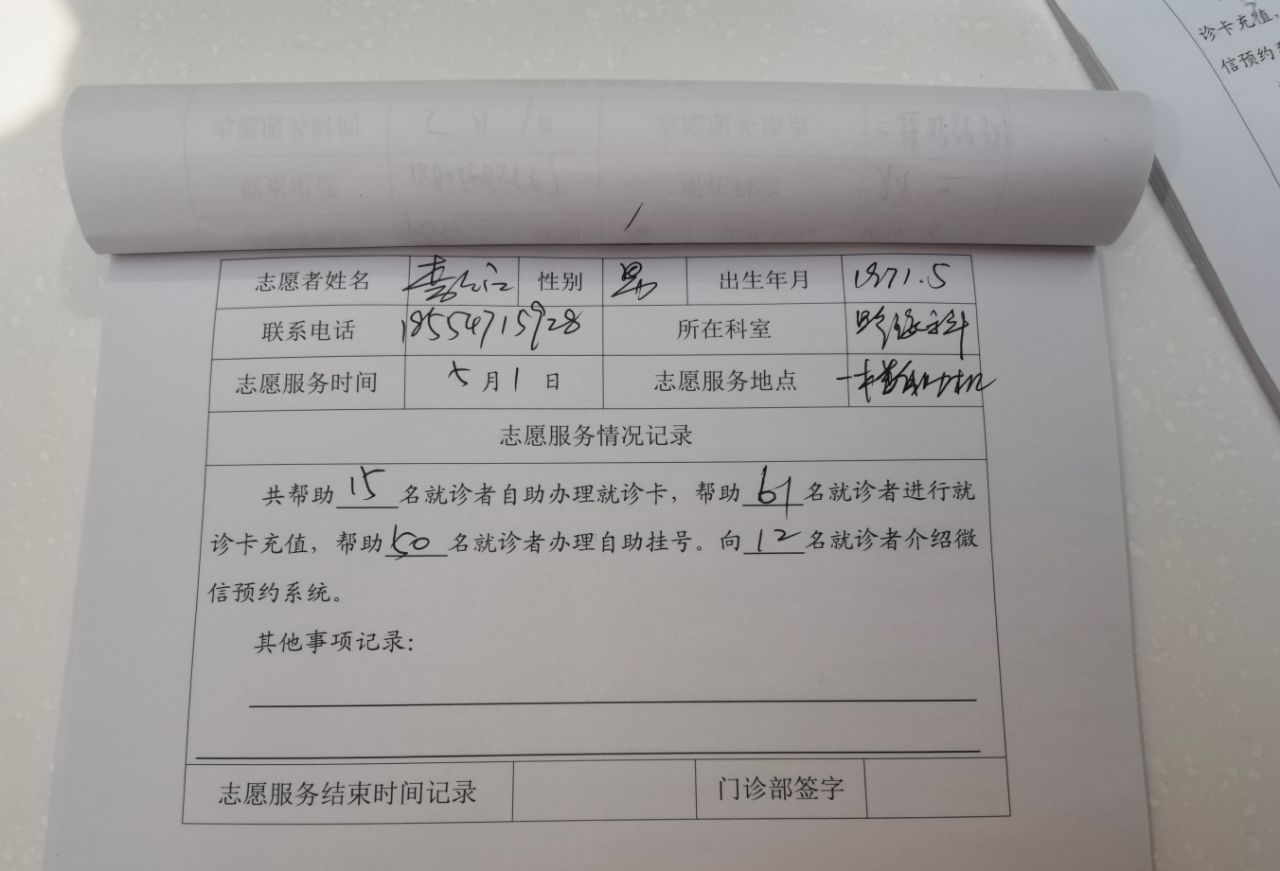 诊卡充值，
信预约系
志愿者姓名 性别 男 出生年月 1971.5
联系电话 18554715928 所在科室
志愿服务时间 5月1日 志愿服务地点
志愿服务情况记录
共帮助15名就诊者自助办理就诊卡，帮助61名就诊者进行就
诊卡充值，帮助50名就诊者办理自助挂号。向12名就诊者介绍微
信预约系统。
其他事项记录：
志愿服务结束时间记录 门诊部签字